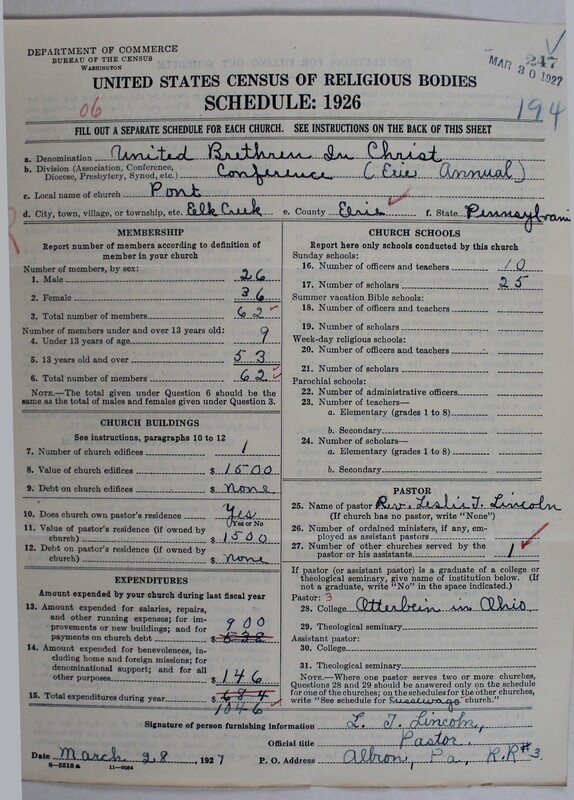 DEPARTMENT OF COMMERCE
BUREAU OF THE CENSUS
WASHINGTON
247
MAR 30 1927
UNITED STATES CENSUS OF RELIGIOUS BODIES
SCHEDULE: 1926
06
194
FILL OUT A SEPARATE SCHEDULE FOR EACH CHURCH. SEE INSTRUCTIONS ON THE BACK OF THIS SHEET
a. Denomination United Brethren In Christ
b. Division (Association, Conference, Diocese, Presbytery, Synod, etc.) Conference (Erie Annual)
c. Local name of church Pont
d. City, town, village, or township, etc. Elk Creek e. County Erie f. State Pennsylvani
MEMBERSHIP
Report number of members according to definition of
member in your church
Number of members, by sex:
1. Male 26
2. Female 36
3. Total number of members 62
Number of members under and over 13 years old:
4. Under 13 years of age 9
5. 13 years old and over 53
6. Total number of members 62
NOTE.—The total given under Question 6 should be the
same as the total of males and females given under Question 3.
CHURCH BUILDINGS
See instructions, paragraphs 10 to 12
7. Number of church edifices 1
8. Value of church edifices $ 1500
9. Debt on church edifices $ None
10. Does church own pastor's residence? Yes
(Yes or No)
11. Value of pastor's residence (if owned by
church) $ 1500
12. Debt on pastor's residence (if owned by
church) $ None
EXPENDITURES
Amount expended by your church during last fiscal year
13. Amount expended for salaries, repairs,
and other running expenses; for im-
provements or new buildings; and for
payments on church debt $ 900 538
14. Amount expended for benevolences, in-
cluding home and foreign missions; for
denominational support; and for all
other purposes $ 146
15. Total expenditures during year $ 684
1046
CHURCH SCHOOLS
Report here only schools conducted by this church
Sunday schools:
16. Number of officers and teachers 10
17. Number of scholars 25
Summer vacation Bible schools:
18. Number of officers and teachers
19. Number of scholars
Week-day religious schools:
20. Number of officers and teachers
21. Number of scholars
Parochial schools:
22. Number of administrative officers
23. Number of teachers—
a. Elementary (grades 1 to 8)
b. Secondary
24. Number of scholars—
a. Elementary (grades 1 to 8)
b. Secondary
PASTOR
25. Name of pastor Rev. Leslie T. Lincoln
(If church has no pastor, write "None")
26. Number of ordained ministers, if any, em-
ployed as assistant pastors
27. Number of other churches served by the
pastor or his assistants 1
If pastor (or assistant pastor) is a graduate of a college or
theological seminary, give name of institution below. (If
not a graduate, write "No" in the space indicated.)
Pastor: 3
28. College Otterbein in Ohio
29. Theological seminary
Assistant pastor:
30. College
31. Theological seminary
NOTE.—Where one pastor serves two or more churches,
Questions 28 and 29 should be answered only on the schedule
for one of the churches; on the schedules for the other churches,
write "See schedule for Sussewago church."
Signature of person furnishing information L. T. Lincoln,
Official title Pastor.
Date March 28, 1927 P. O. Address Albion, Pa, R.R#3.
8-5518a 11-9084